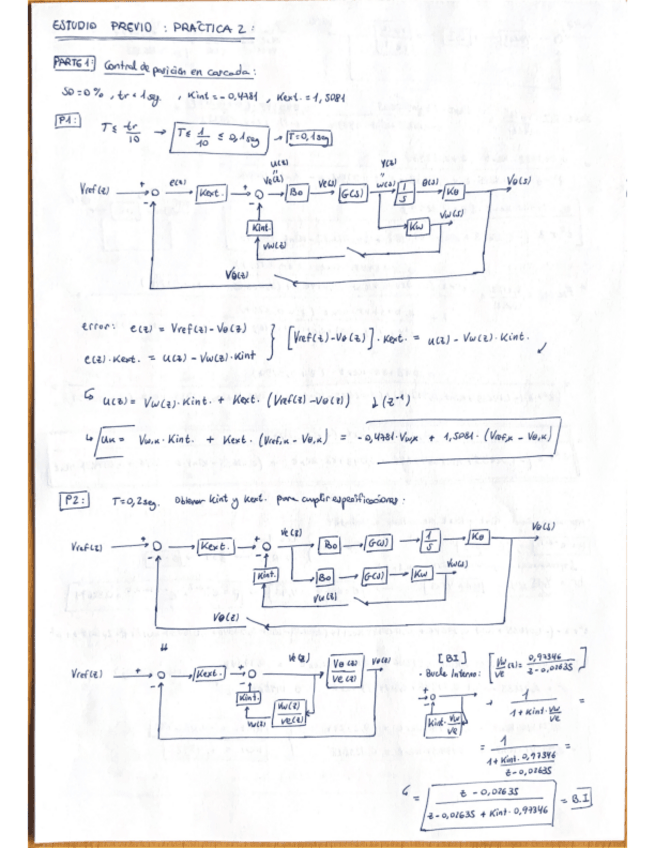 ESTUDIO PREVIO : PRACTICA 2 :
PARTE 1: Control de posición en cascada :
SO = 0 % , tr < 1 seg. , Kint = -0,4781 , Kext. = 1,5081
P1: T ≤ tr/10 → T ≤ 1/10 ≤ 0,1 seg → T = 0,1 seg
u(z) y(z)
Vref(z) + - e(z) Kext. + - Ve(z) Bo Ve(s) G(s) w(s) 1/s θ(s) Kθ Vθ(s)
Kint. Kw Vw(s)
Vw(z)
Vθ(z)
error: e(z) = Vref(z) - Vθ(z)
e(z) · Kext. = u(z) - Vw(z) · Kint } [Vref(z) - Vθ(z)] · Kext. = u(z) - Vw(z) · Kint.
u(z) = Vw(z) · Kint. + Kext. (Vref(z) - Vθ(z)) ↓ (z⁻¹)
uk = Vw,k · Kint. + Kext. (Vref,k - Vθ,k) = -0,4781 · Vw,k + 1,5081 · (Vref,k - Vθ,k)
P2: T = 0,2 seg. Obtener Kint y Kext. para cumplir especificaciones.
Vref(z) + - Kext. + - Ve(z) Bo G(s) 1/s Kθ Vθ(s)
Kint. Bo G(s) Kw Vw(s)
Vw(z)
Vθ(z)
Vref(z) + - Kext. + - Ve(z) Vθ(z)/Ve(z) Vθ(z)
Kint. Vw(z) Vw(z)/Ve(z)
[BI]
· Bucle Interno: [Vw/Ve (z) = 0,97346 / z - 0,02635]
+ - Kint · Vw/Ve → 1 / 1 + Kint · Vw/Ve =
= 1 / 1 + Kint · 0,97346 / z - 0,02635 =
= z - 0,02635 / z - 0,02635 + Kint · 0,97346 = B.I